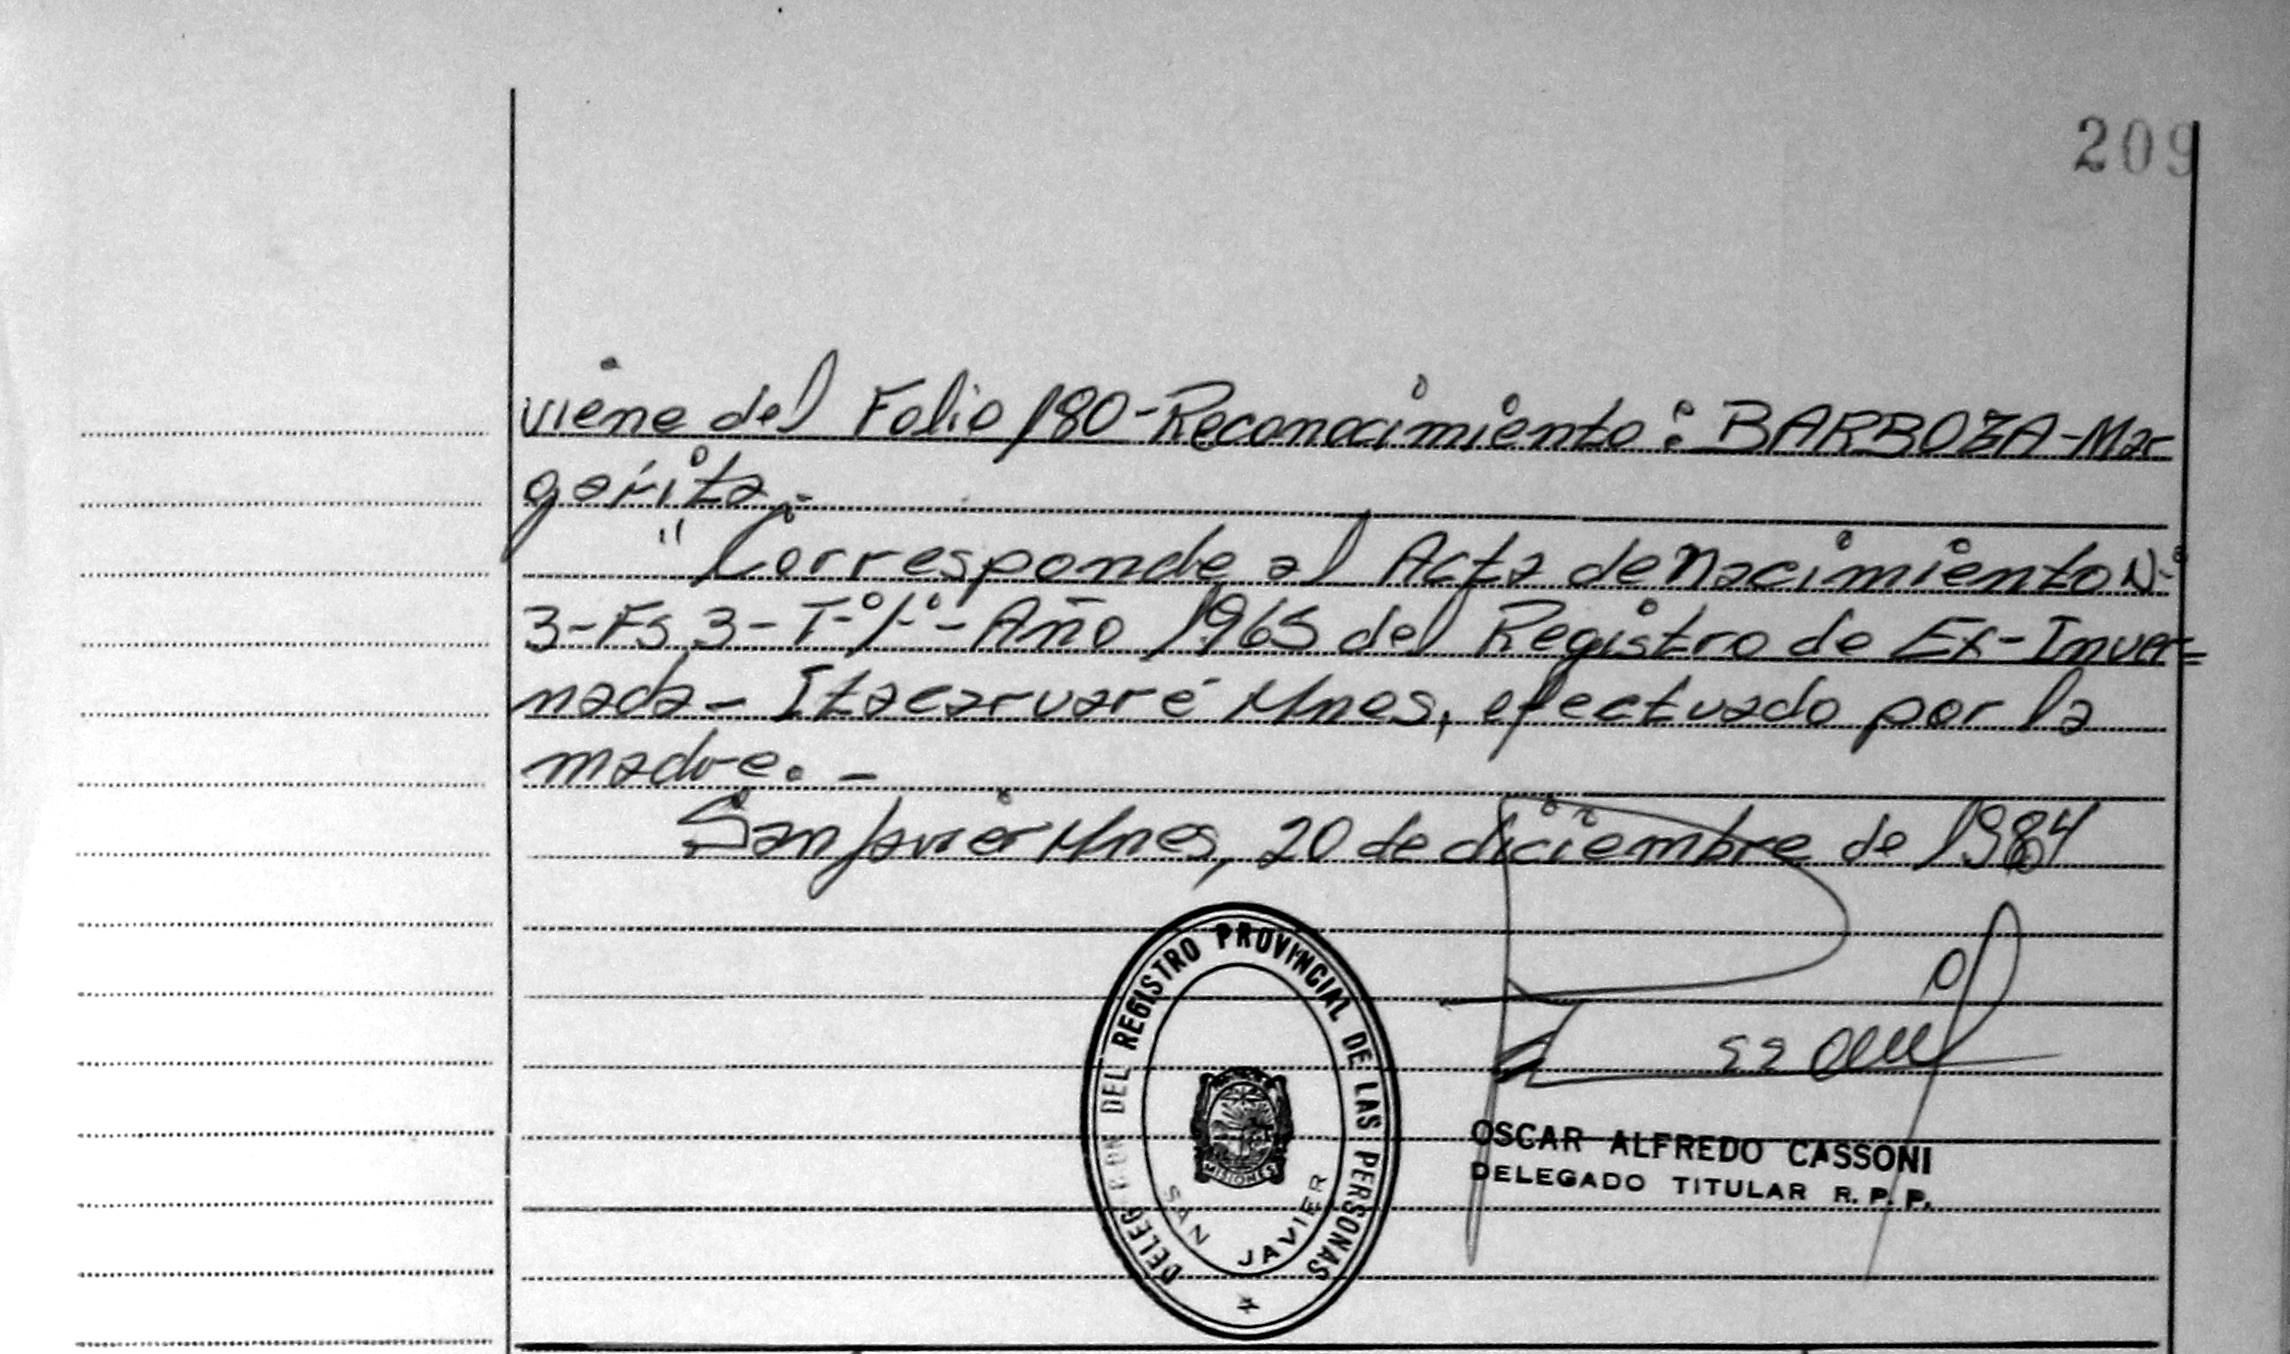 209
viene del Folio 180-Reconocimiento: BARBOZA-Mar
garita.-
" Corresponde al Acta de Nacimiento N-°
3-Fs 3-T-°1-°-Año 1965 del Registro de Ex-Inver=
nada- Itacaruaré Mnes, efectuado por la
madre.-
San Javier Mnes, 20 de diciembre de 1984
DELEGACION DEL REGISTRO PROVINCIAL DE LAS PERSONAS
MISIONES
SAN JAVIER
OSCAR ALFREDO CASSONI
DELEGADO TITULAR R. P. P.